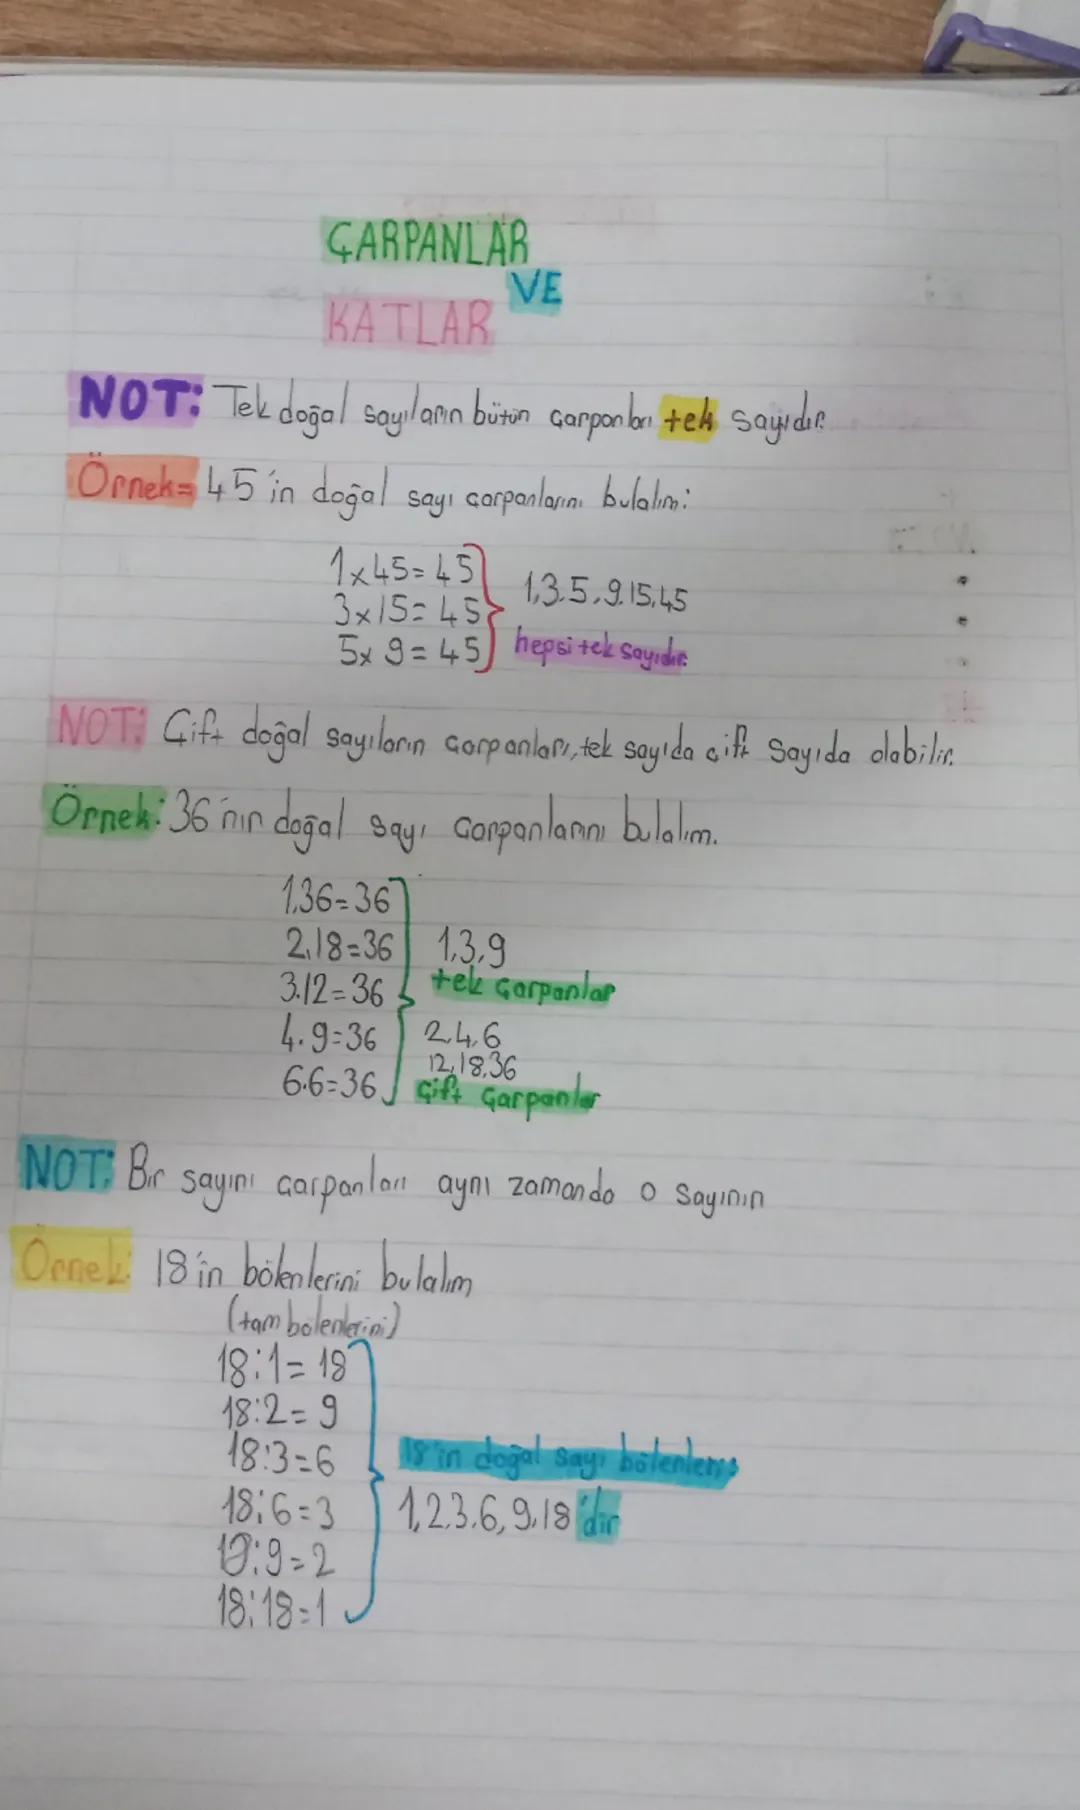 ÇARPANLAR
VE
KATLAR
NOT: Tek doğal sayıların bütün çarpanları tek sayıdır.
Örnek= 45'in doğal sayı çarpanlarını bulalım:
1x45=45
3x15=45
5x9=45
1,3.5,9.15,45
hepsi tek sayıdır.
NOT: Çift doğal sayıların çarpanları, tek sayıda çift sayıda olabilir.
Örnek: 36'nın doğal sayı çarpanlarını bulalım.
1.36=36
2.18=36
3.12=36
4.9=36
6.6=36
1,3,9
tek çarpanlar
2,4,6
12,18,36
çift çarpanlar
NOT: Bir sayını çarpanları aynı zamanda o sayının
Örnek: 18'in bölenlerini bulalım
(tam bölenlerini)
18:1=18
18:2=9
18:3=6
18:6=3
18:9=2
18:18=1
18'in doğal sayı bölenleri
1,2,3,6,9,18'dir